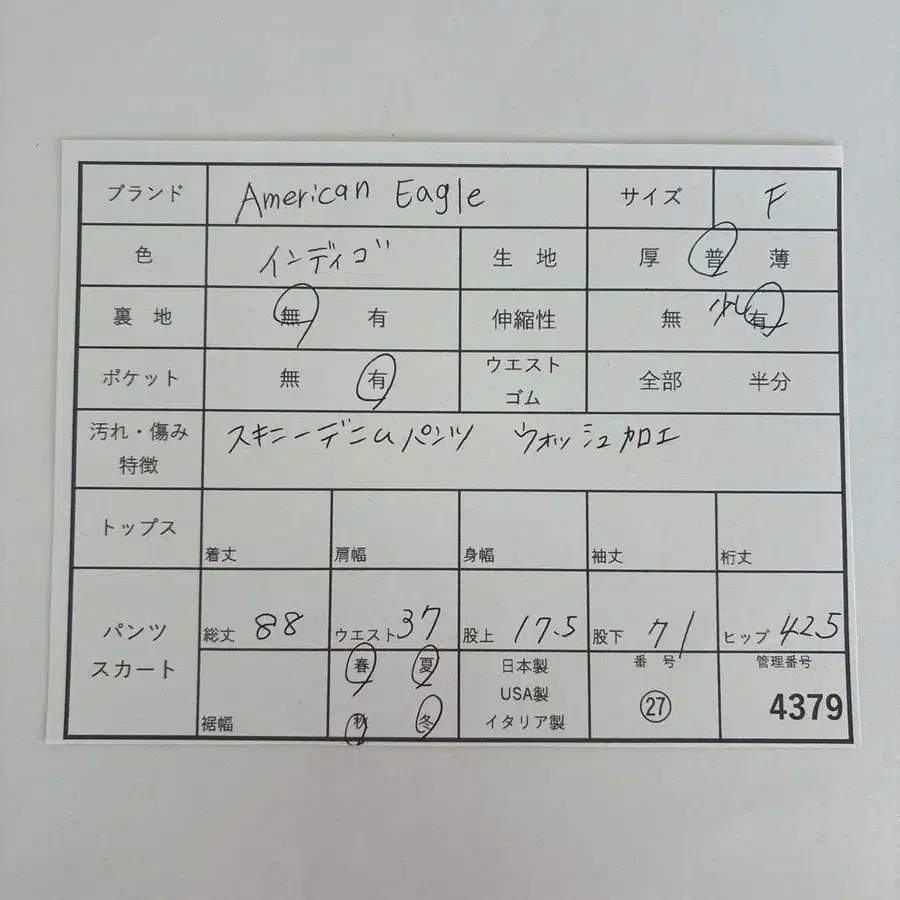 ブランド American Eagle サイズ F
色 インディゴ 生 地 厚 普 薄
裏 地 無 有 伸縮性 無 少し 有
ポケット 無 有 ウエスト ゴム 全部 半分
汚れ・傷み 特徴 スキニーデニムパンツ ウォッシュ加工
トップス 着丈 肩幅 身幅 袖丈 裄丈
パンツ スカート 総丈 88 ウエスト 37 股上 17.5 股下 71 ヒップ 42.5
裾幅 春 夏 秋 冬 日本製 USA製 イタリア製 番 号 ㉗ 管理番号 4379